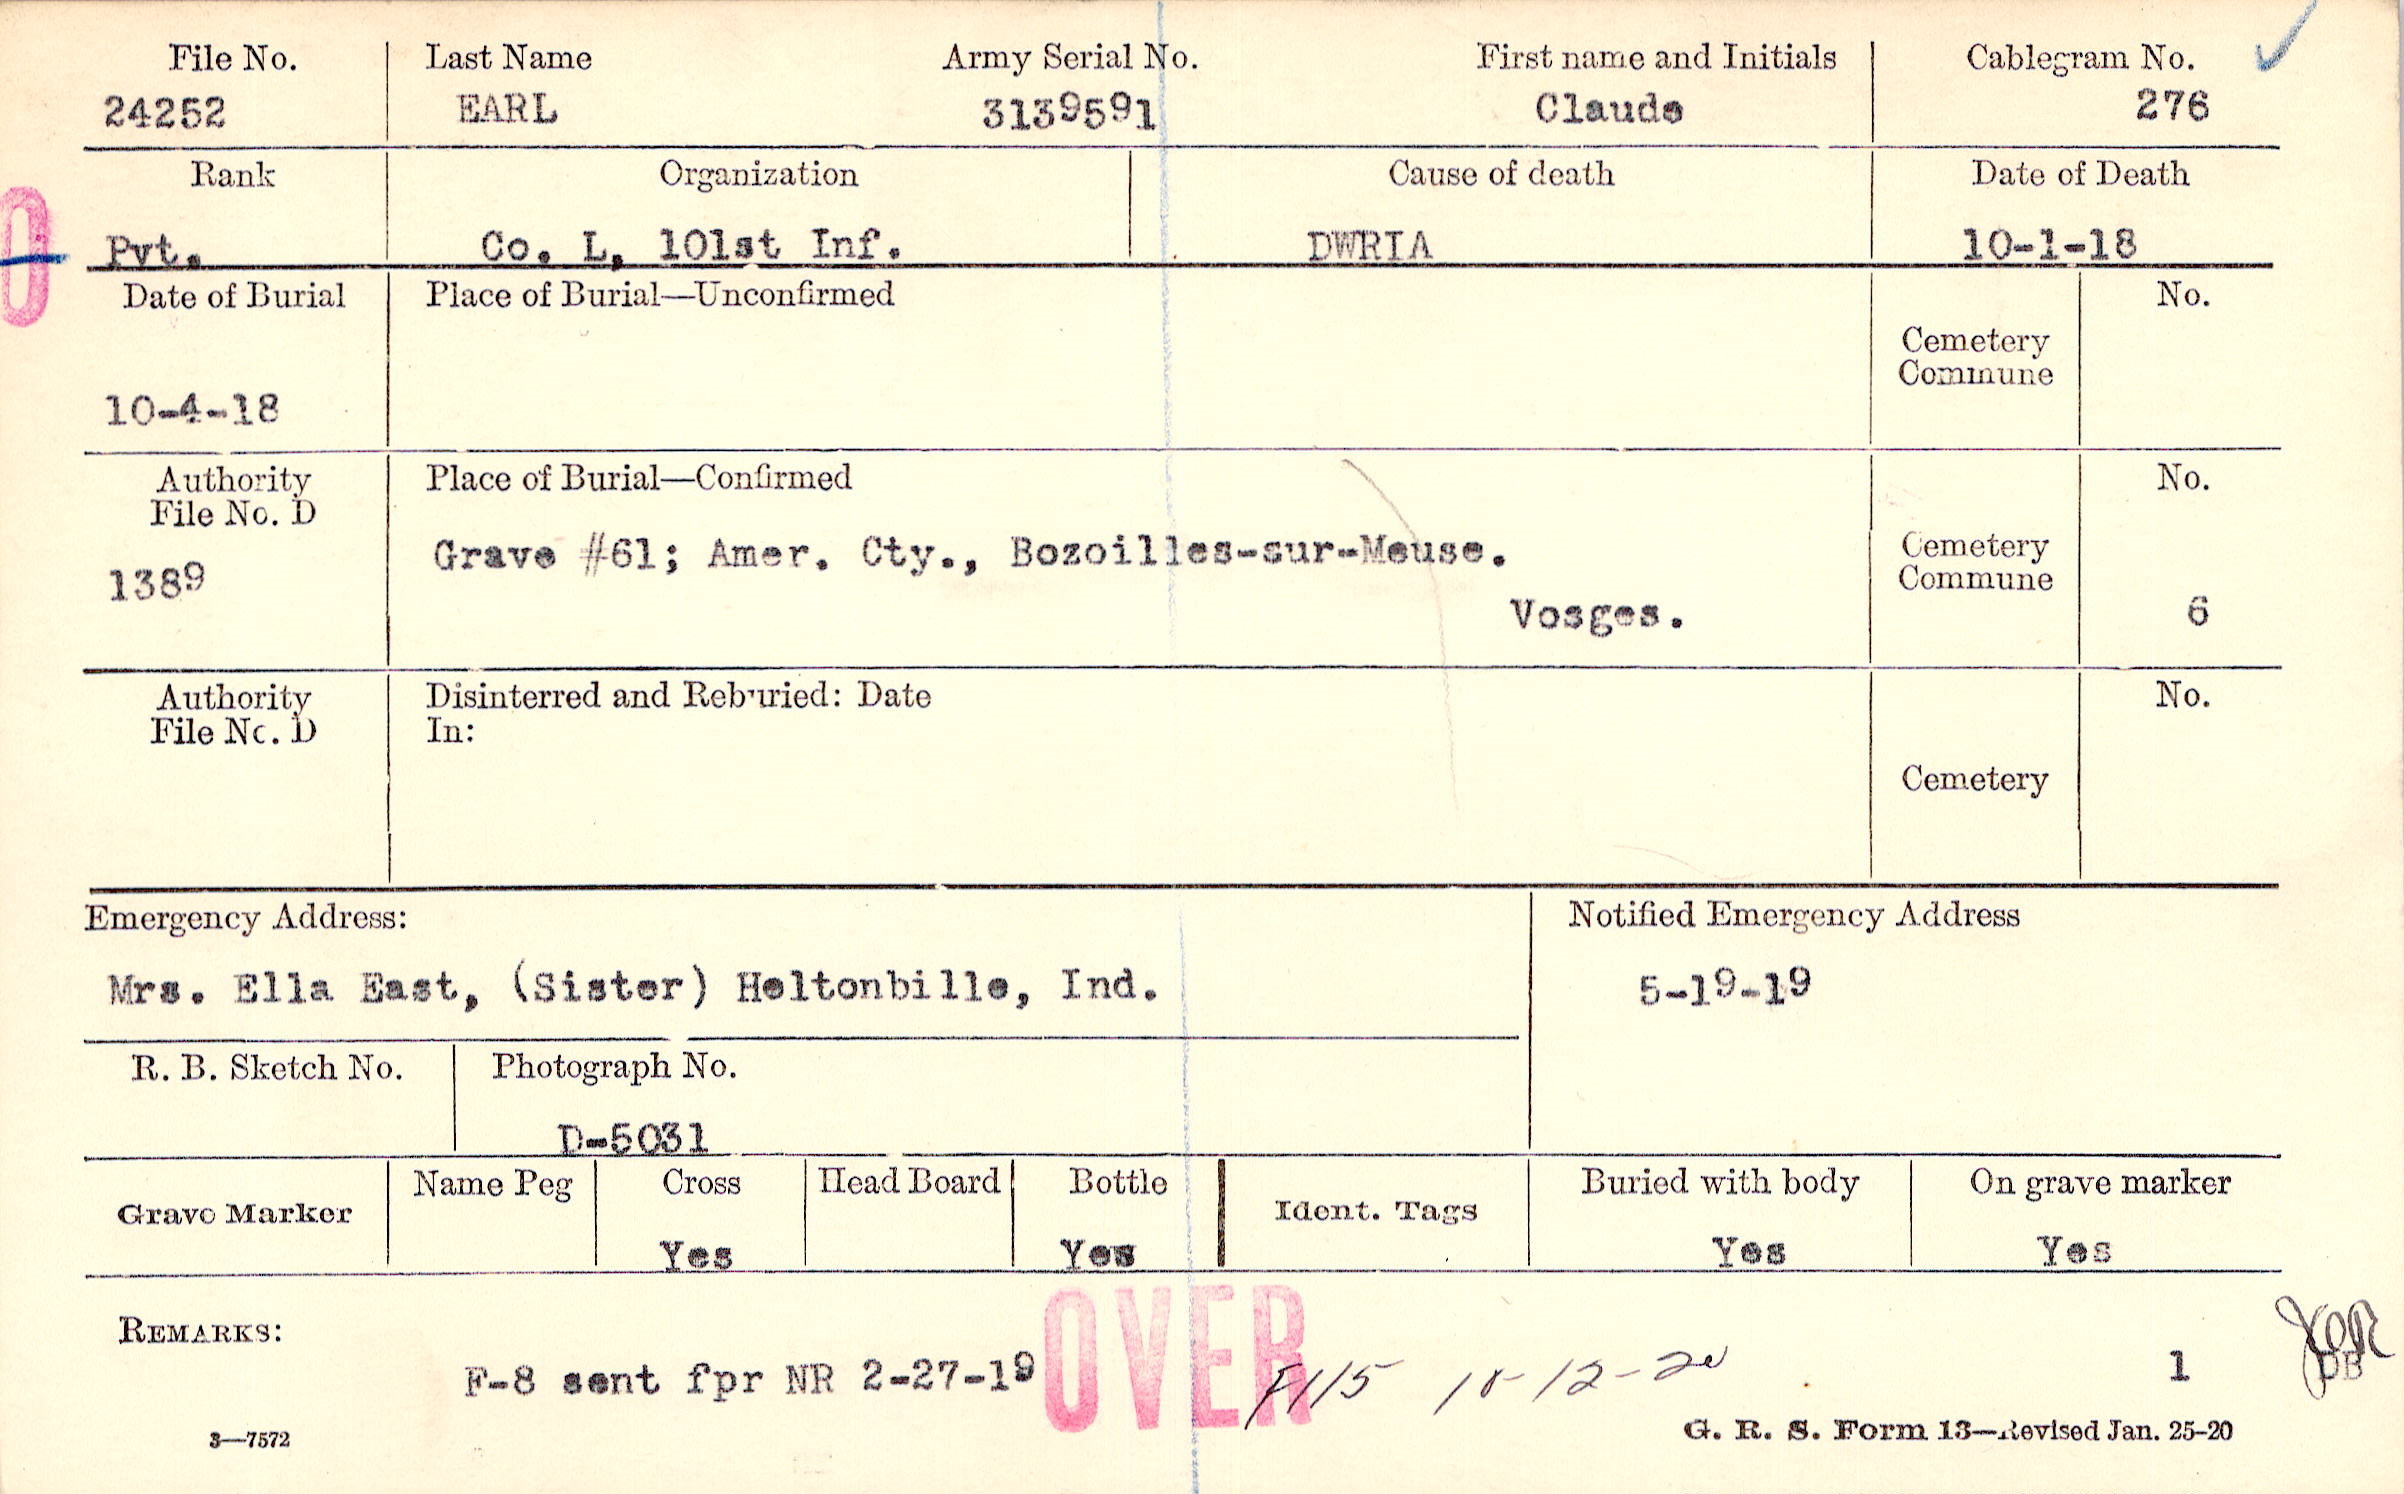 File No. Last Name Army Serial No. First name and Initials Cablegram No.
24252 EARL 3139591 Claude 276
Rank Organization Cause of death Date of Death
Pvt. Co. L, 101st Inf. DWRIA 10-1-18
Date of Burial Place of Burial—Unconfirmed No.
Cemetery
Commune
10-4-18
Authority Place of Burial—Confirmed No.
File No. D
Grave #61; Amer. Cty., Bozoilles-sur-Meuse. Cemetery
1389 Commune
Vosges. 6
Authority Disinterred and Reburied: Date No.
File No. D In:
Cemetery
Emergency Address: Notified Emergency Address
Mrs. Ella East, (Sister) Heltonbille, Ind. 5-19-19
R. B. Sketch No. Photograph No.
D-5031
Grave Marker Name Peg Cross Head Board Bottle Ident. Tags Buried with body On grave marker
Yes Yes Yes Yes
OVER
REMARKS:
F-8 sent fpr NR 2-27-19 F115 10-12-20 1 DB
3—7572 G. R. S. Form 13—Revised Jan. 25-20